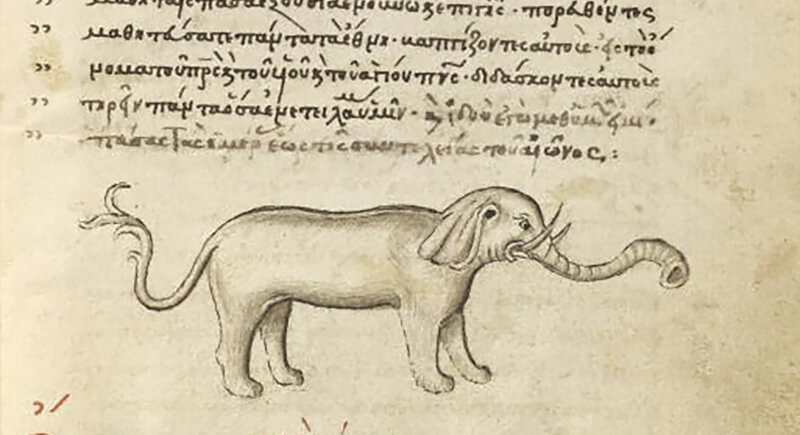 πᾶσα ἐξουσία ἐν οὐνῶ κ ἐπι γῆς · πορευθέντες
" μαθητεύσατε πάντα τὰ ἔθνη · βαπτίζοντες αὐτοὺς · εἰς τὸ ὄ
" νομα τοῦ πρς κ τοῦ υἱοῦ κ τοῦ ἁγίου πνς · διδάσκοντες αὐτοὺς
" τηρεῖν πάντα ὅσα ἐνετειλάμην ὑμῖν · κ ἰδοὺ ἐγὼ μεθ ὑμῶν εἰμι ·
" πάσας τὰς ἡμέρ ἕως τῆς συντελείας τοῦ αἰῶνος :
"